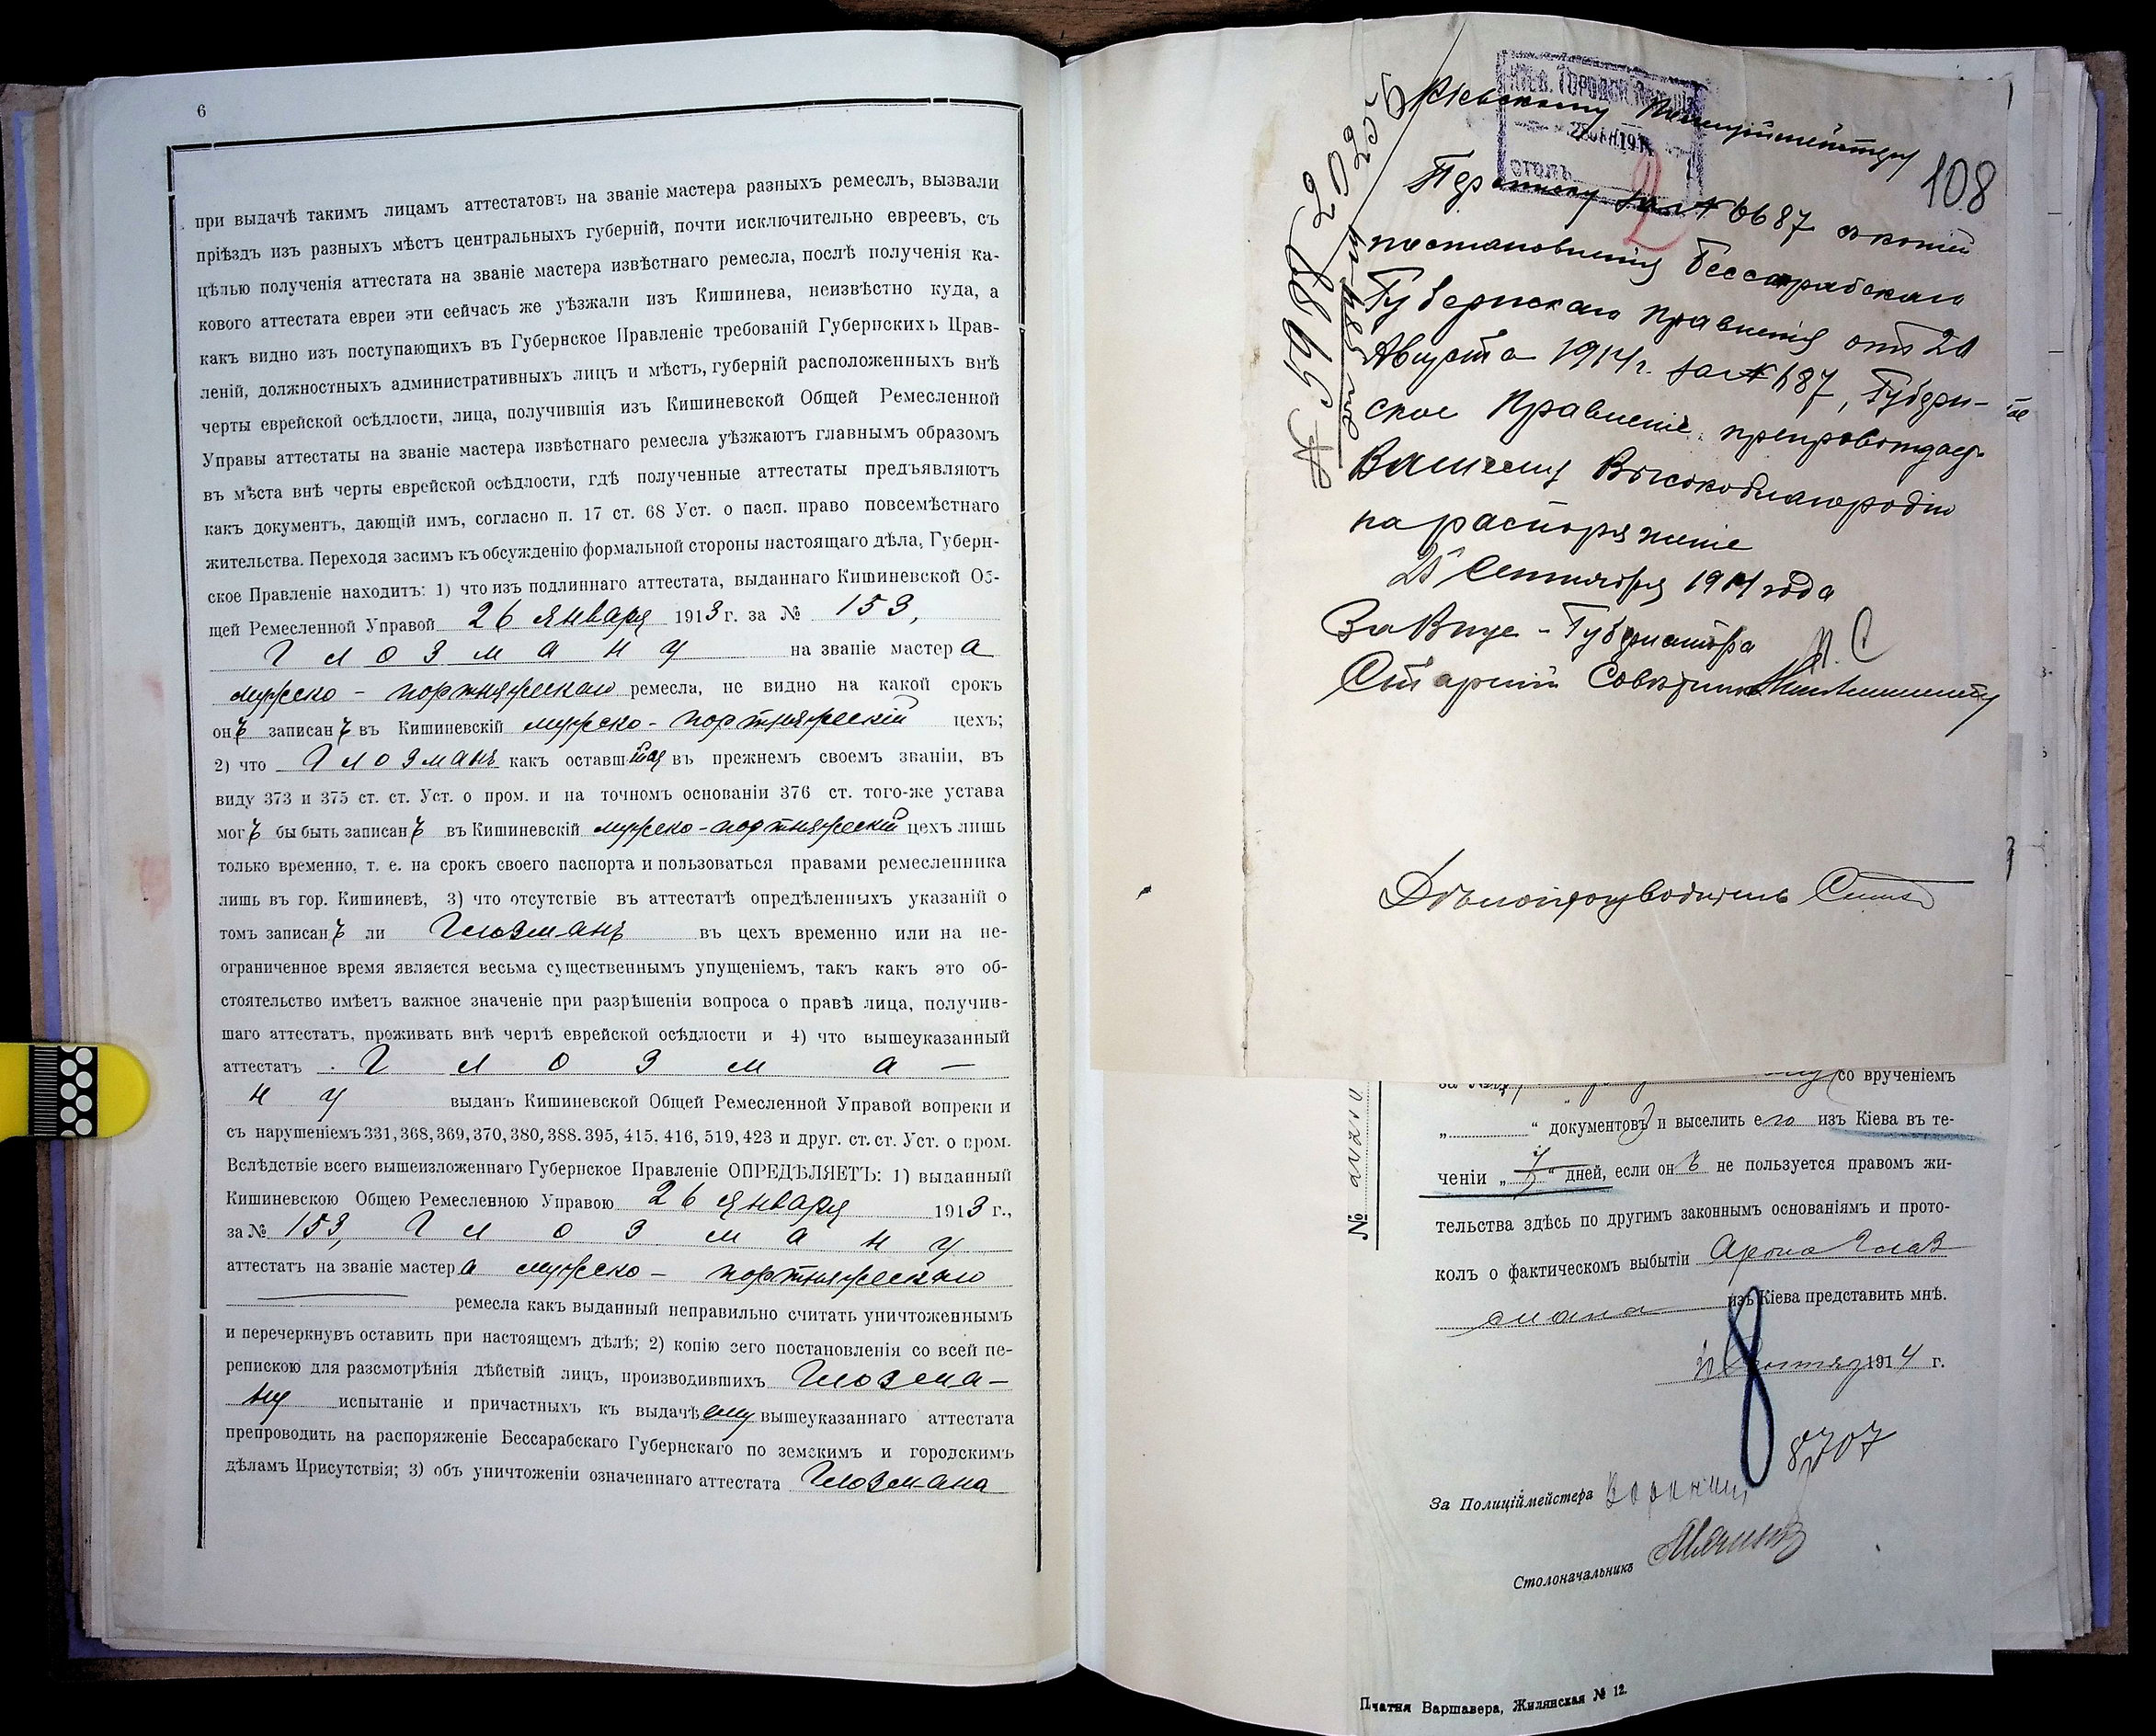 6
при выдачѣ такимъ лицамъ аттестатовъ на званіе мастера разныхъ ремеслъ, вызвали
пріѣздъ изъ разныхъ мѣстъ центральныхъ губерній, почти исключительно евреевъ, съ
цѣлью полученія аттестата на званіе мастера извѣстнаго ремесла, послѣ полученія ка-
кового аттестата евреи эти сейчасъ же уѣзжали изъ Кишинева, неизвѣстно куда, а
какъ видно изъ поступающихъ въ Губернское Правленіе требованій Губернскихъ Прав-
леній, должностныхъ административныхъ лицъ и мѣстъ, губерній расположенныхъ внѣ
черты еврейской осѣдлости, лица, получившія изъ Кишиневской Общей Ремесленной
Управы аттестаты на званіе мастера извѣстнаго ремесла уѣзжаютъ главнымъ образомъ
въ мѣста внѣ черты еврейской осѣдлости, гдѣ полученные аттестаты предъявляютъ
какъ документъ, дающій имъ, согласно п. 17 ст. 68 Уст. о пасп. право повсемѣстнаго
жительства. Переходя засимъ къ обсужденію формальной стороны настоящаго дѣла, Губерн-
ское Правленіе находитъ: 1) что изъ подлиннаго аттестата, выданнаго Кишиневской Об-
щей Ремесленной Управой 26 января 1913 г. за № 153,
Глозману на званіе мастера
мужско-портняжескаго ремесла, не видно на какой срокъ
онъ записанъ въ Кишиневскій мужско-портняжескій цехъ;
2) что Глозманъ какъ оставшійся въ прежнемъ своемъ званіи, въ
виду 373 и 375 ст. ст. Уст. о пром. и на точномъ основаніи 376 ст. того-же устава
могъ бы быть записанъ въ Кишиневскій мужско-портняжескій цехъ лишь
только временно, т. е. на срокъ своего паспорта и пользоваться правами ремесленника
лишь въ гор. Кишиневѣ, 3) что отсутствіе въ аттестатѣ опредѣленныхъ указаній о
томъ записанъ ли Глозманъ въ цехъ временно или на не-
ограниченное время является весьма существеннымъ упущеніемъ, такъ какъ это об-
стоятельство имѣетъ важное значеніе при разрѣшеніи вопроса о правѣ лица, получив-
шаго аттестатъ, проживать внѣ чертѣ еврейской осѣдлости и 4) что вышеуказанный
аттестатъ Глозма-
ну выданъ Кишиневской Общей Ремесленной Управой вопреки и
съ нарушеніемъ 331, 368, 369, 370, 380, 388. 395, 415, 416, 519, 423 и друг. ст. ст. Уст. о пром.
Вслѣдствіе всего вышеизложеннаго Губернское Правленіе ОПРЕДѢЛЯЕТЪ: 1) выданный
Кишиневскою Общею Ремесленною Управою 26 января 1913 г.,
за № 153, Глозману
аттестатъ на званіе мастера мужско-портняжескаго
ремесла какъ выданный неправильно считать уничтоженнымъ
и перечеркнувъ оставить при настоящемъ дѣлѣ; 2) копію сего постановленія со всей пе-
репискою для разсмотрѣнія дѣйствій лицъ, производившихъ Глозма-
ну испытаніе и причастныхъ къ выдачѣ ему вышеуказаннаго аттестата
препроводить на распоряженіе Бессарабскаго Губернскаго по земскимъ и городскимъ
дѣламъ Присутствія; 3) объ уничтоженіи означеннаго аттестата Глозмана
Кіевскому Полиціймейстеру
108
Переписку за № 6687 съ копіей
постановленія Бессарабскаго
Губернскаго Правленія отъ 20
Августа 1914 г. за № 687, Губерн-
ское Правленіе препровождаетъ
Вашему Высокоблагородію
на распоряженіе
25 Сентября 1914 года
За Вице-Губернатора
Старшій Совѣтникъ
Дѣлопроизводитель
со врученіемъ
„ “ документовъ и выселить его изъ Кіева въ те-
ченіи „ “ дней, если онъ не пользуется правомъ жи-
тельства здѣсь по другимъ законнымъ основаніямъ и прото-
колъ о фактическомъ выбытіи Арона Глоз
мана изъ Кіева представить мнѣ.
1914 г.
8
8707
За Полиціймейстера
Столоначальникъ
Пчатня Варшавера, Жилянская № 12.